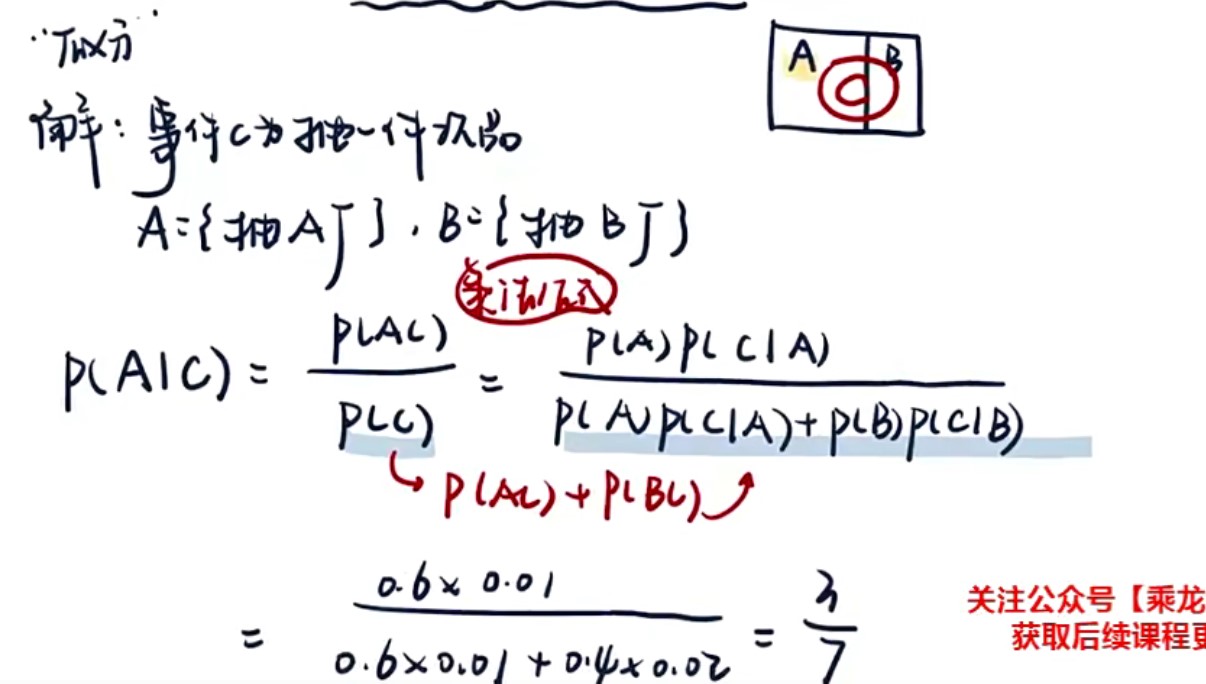 A B
C
解：事件C为抽一件次品
A={抽A厂}，B={抽B厂}
乘法公式
P(A|C) = P(AC) / P(C) = P(A)P(C|A) / P(A)P(C|A)+P(B)P(C|B)
P(AC)+P(BC)
= 0.6×0.01 / 0.6×0.01+0.4×0.02 = 3/7
关注公众号【乘龙
获取后续课程更